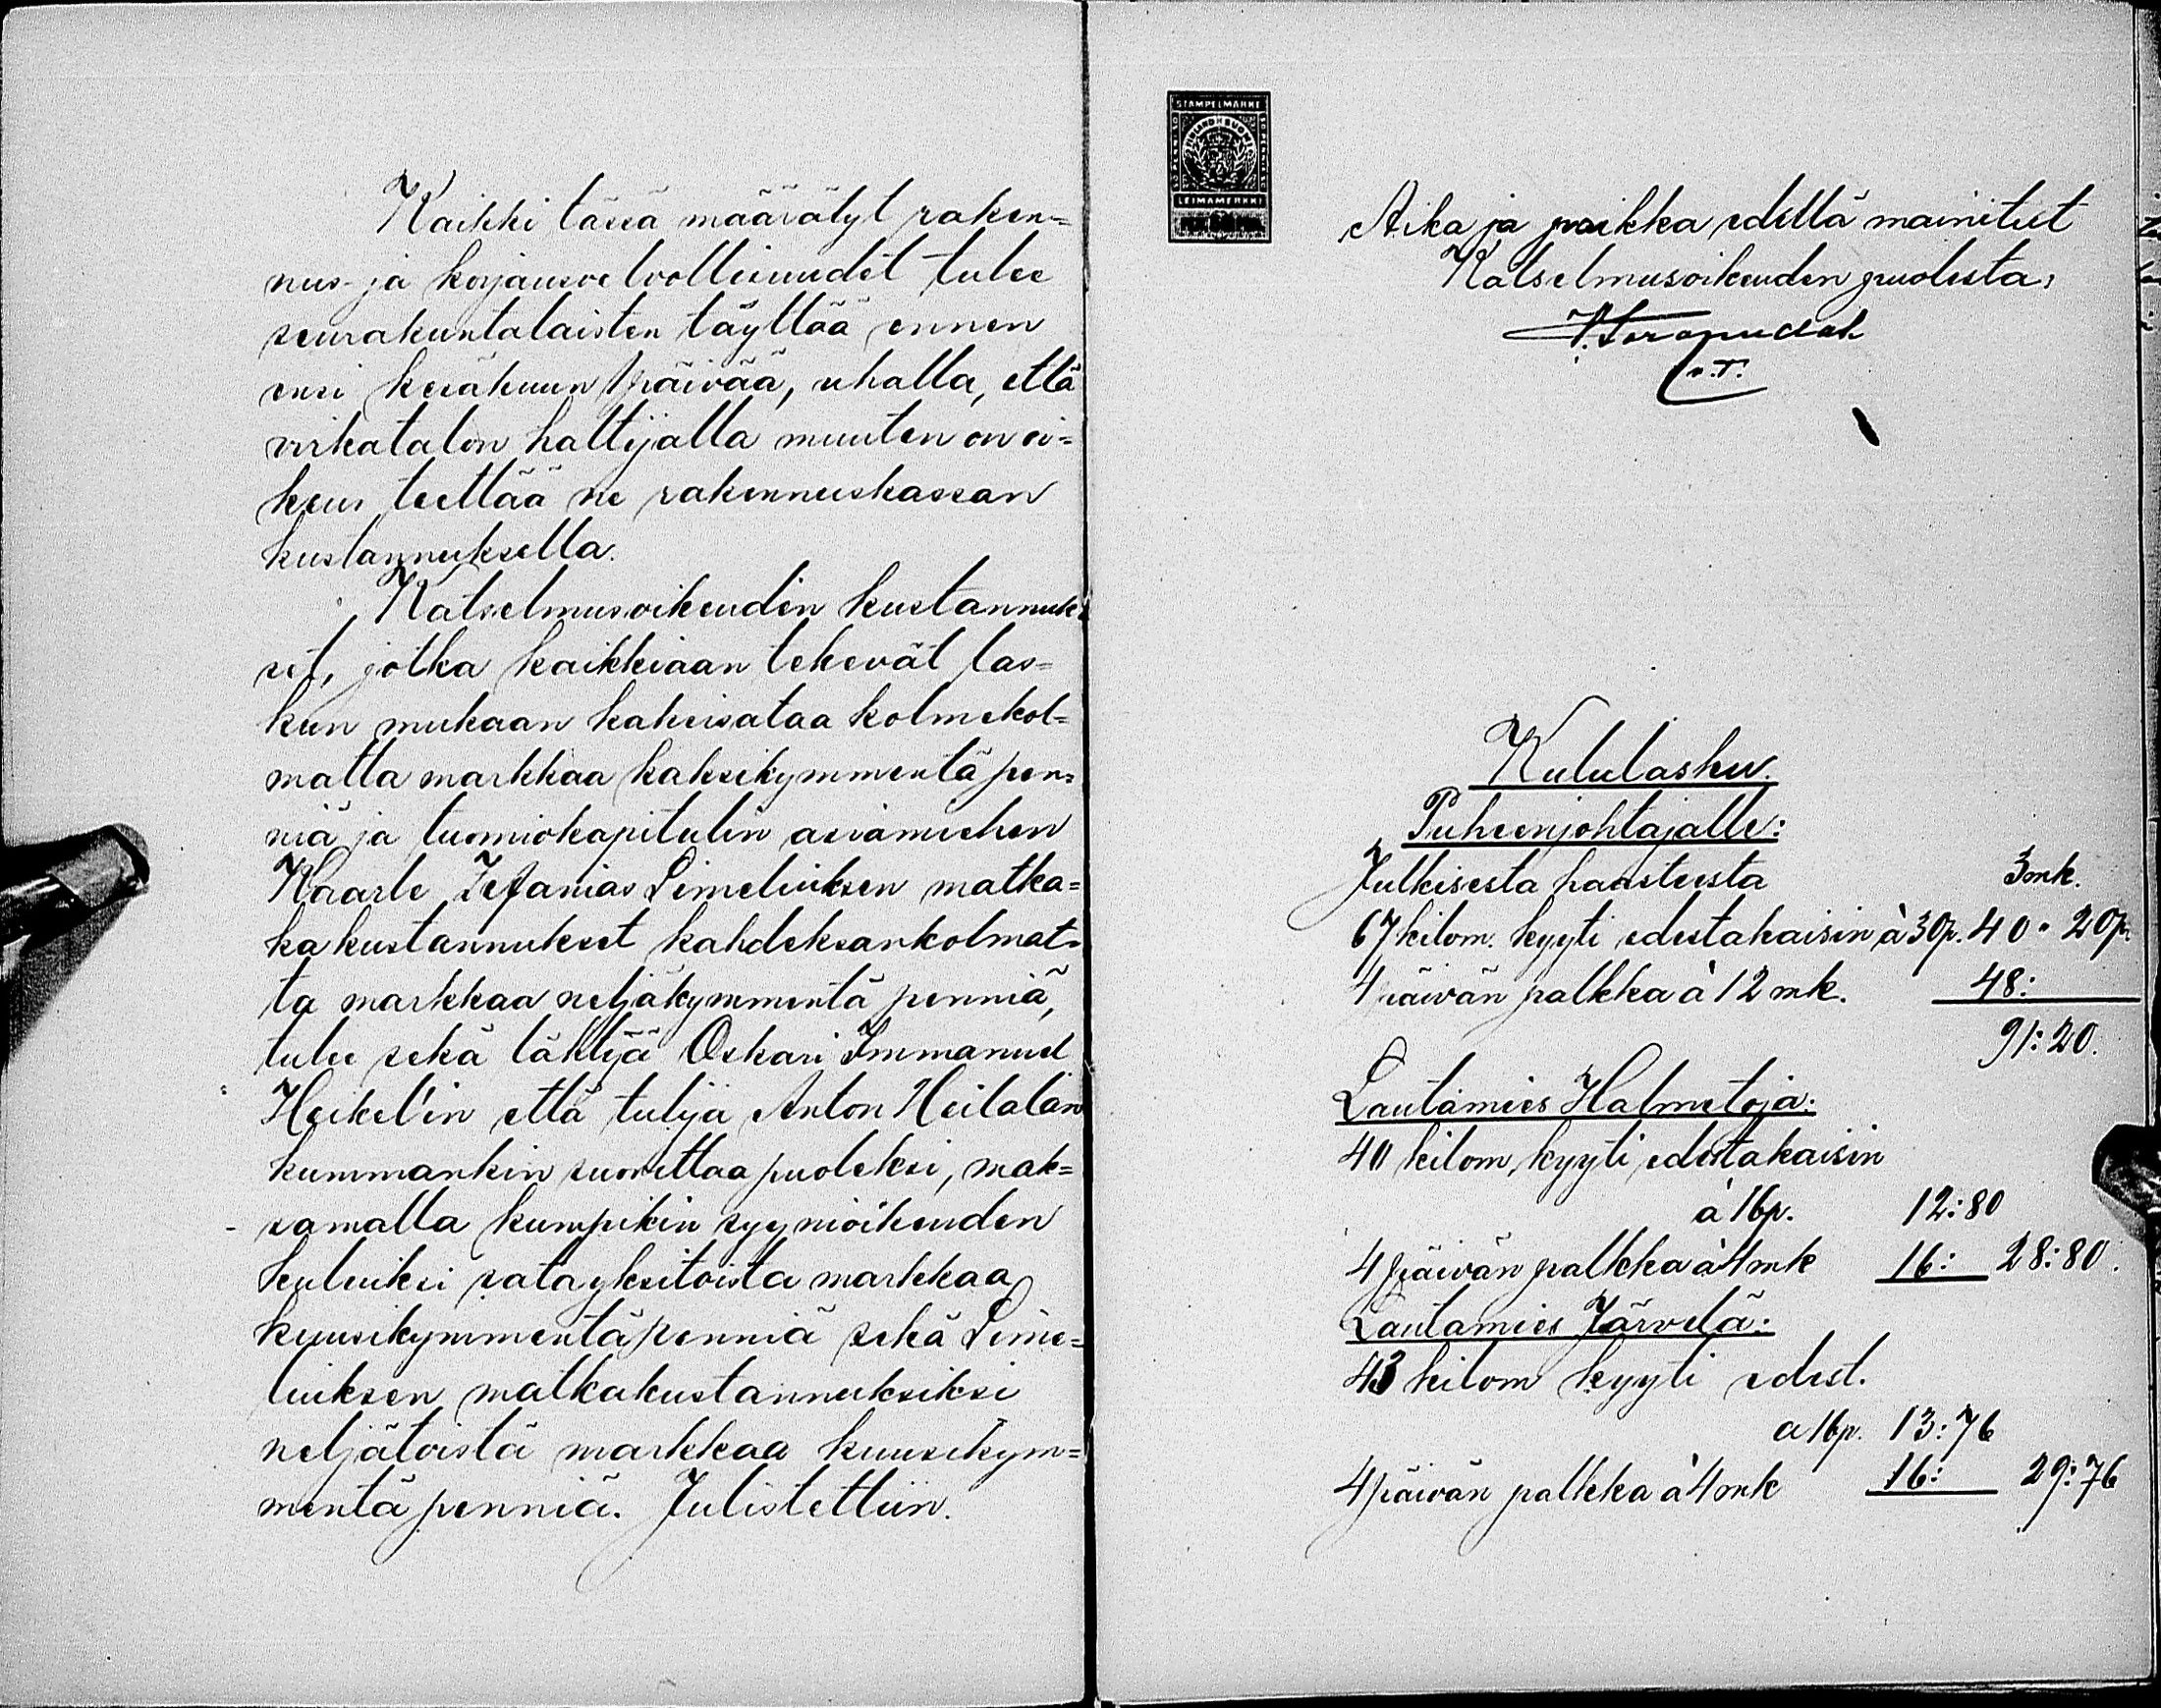 Kaikki tässä määrätyt raken=
nus- ja korjausvelvollisuudet tulee
seurakuntalaisten täyttää ennen
ensi kesäkuun 1 päivää, uhalla, että
virkatalon haltijalla muuten on oi=
keus teettää ne rakennuskassan
kustannuksella.
Katselmusoikeuden kustannuk=
set, jotka kaikkiaan tekevät las=
kun mukaan kaksisataa kolmekol=
matta markkaa kaksikymmentä pen=
niä ja tuomiokapitulin asiamiehen
Kaarle Zefanias Limeliuksen matka=
kakustannukset kahdeksankolmat=
ta markkaa neljäkymmentä penniä,
tulee sekä lähtijä Oskari Immanuel
Heikel'in että tulija Anton Heilalan
kummankin suorittaa puoleksi, mak=
samalla kumpikin syynioikeuden
kuluiksi satayksitoista markkaa
kuusikymmentä penniä sekä Lime=
liuksen matkakustannuksiksi
neljätoista markkaa kuusikym=
mentä penniä. Julistettiin.
STÄMPELMÄRKE
FINLAND SUOMI
LEIMAMERKKI
Aika ja paikka edellä mainitut
Katselmusoikeuden puolesta,
v.T.
Kululasku.
Puheenjohtajalle:
Julkisesta haasteesta 3 mk.
67 kilom. kyyti edestakaisin à 30 p. 40 " 20 p
4 päivän palkka à 12 mk. 48:
91:20.
Lautamies Halmetoja:
40 kilom. kyyti edestakaisin
à 16 p. 12:80
4 päivän palkka à 4 mk 16: 28:80.
Lautamies Järvelä:
43 kilom kyyti edest.
a 16 p. 13:76
4 päivän palkka à 4 mk 16: 29:76